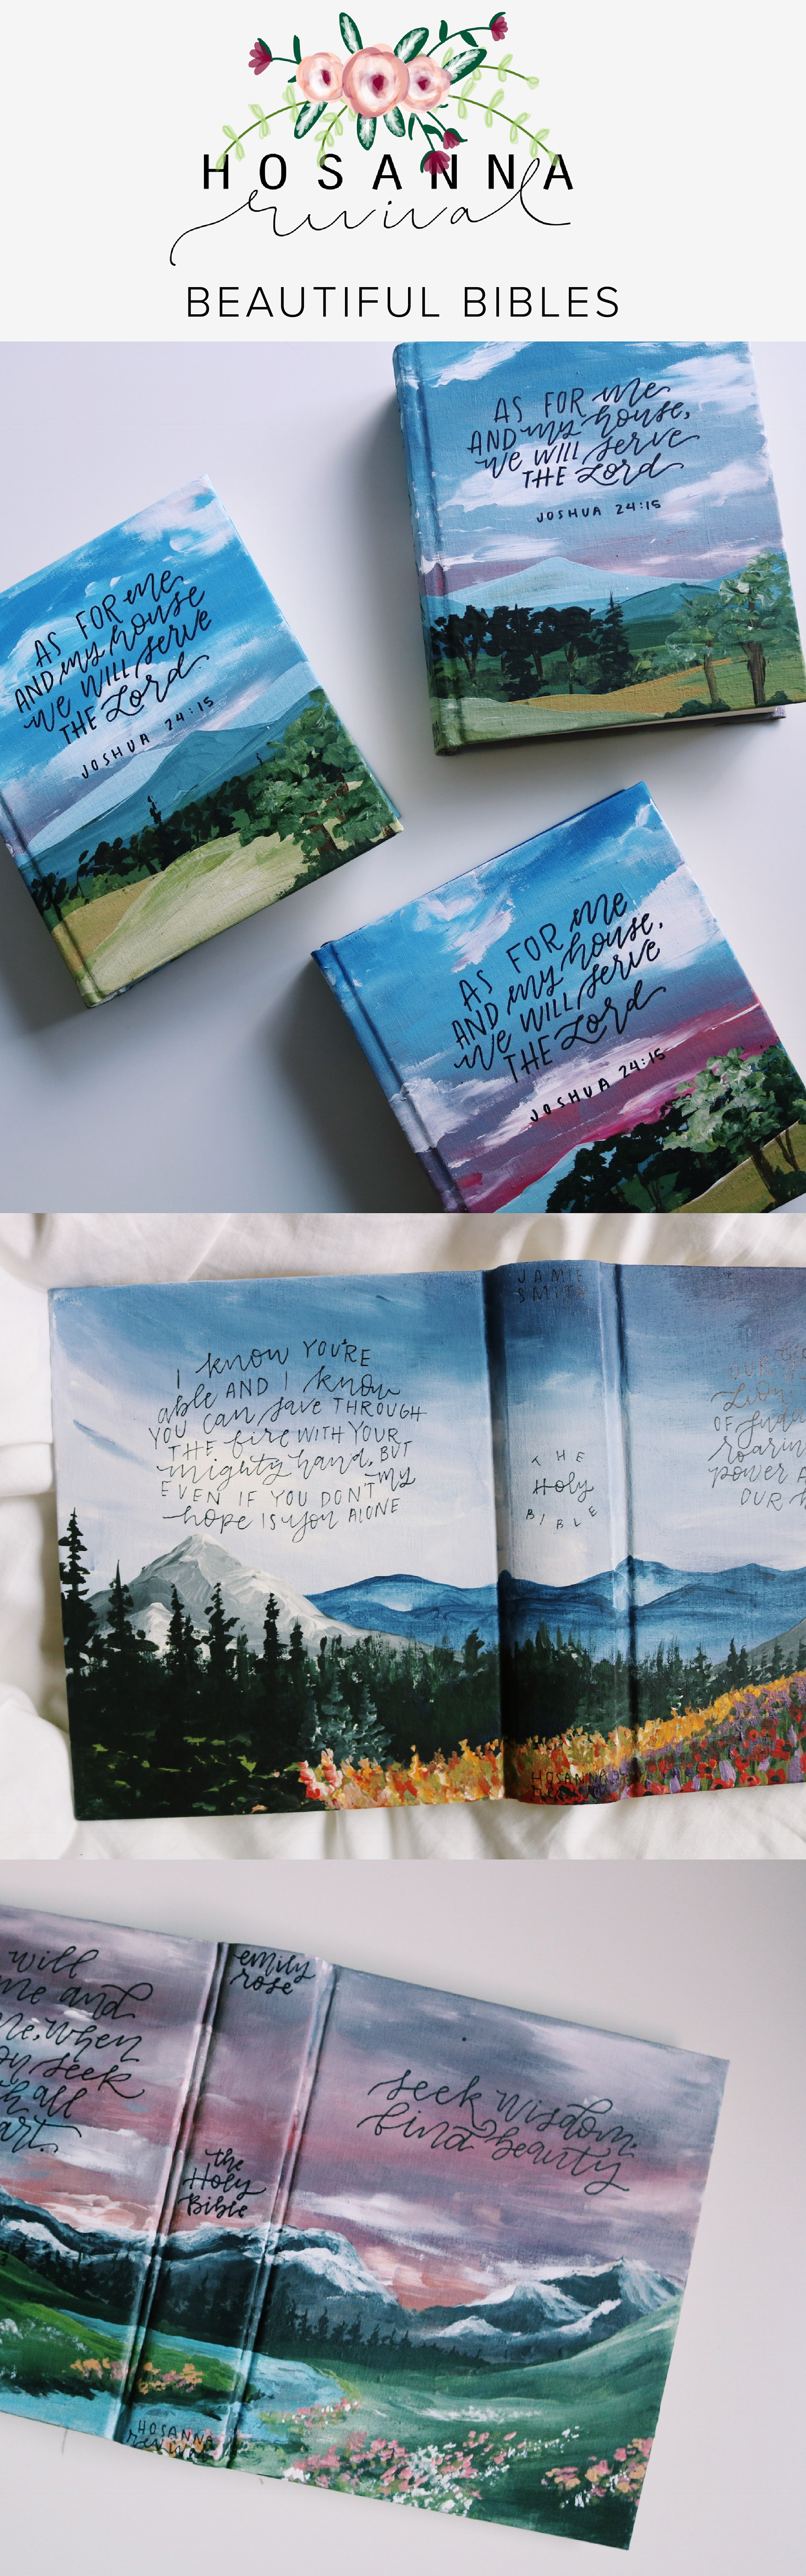 HOSANNA
revival
BEAUTIFUL BIBLES
AS FOR me
AND my house,
we WILL serve
THE Lord
JOSHUA 24:15
AS FOR me
AND my house
we WILL serve
THE Lord
JOSHUA 24:15
AS FOR me
AND my house,
we WILL serve
THE Lord
JOSHUA 24:15
I know YOU'RE
able AND I know
YOU can save THROUGH
THE fire WITH YOUR
mighty hand, BUT
EVEN IF YOU DON'T my
hope IS you ALONE
JAMIE
SMITH
THE
Holy
BIBLE
HOSANNA
revival
OUR
Lion
OF Judah
roarin
power A
OUR
will
me and
me, when
seek
all
emily
rose
the
Holy
Bible
HOSANNA
revival
seek wisdom.
find beauty